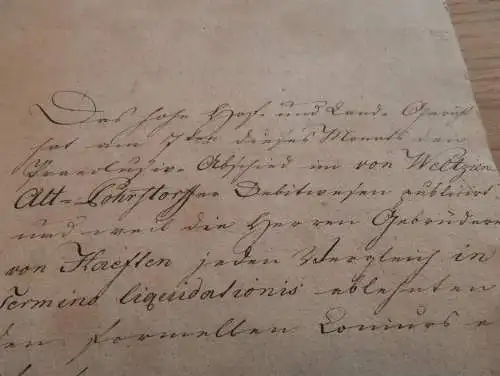 Das hohe Hof- und Land-Gericht
hat am 7ten dieses Monats den
Praeclusiv-Abschied im von Weltzien
Alt-Rohrstorffer Debitwesen publicirt
und weil die Herren Gebrüdere
von Haeften jeden Vergleich in
Termino liquidationis ablehnten
den formellen Concurs e